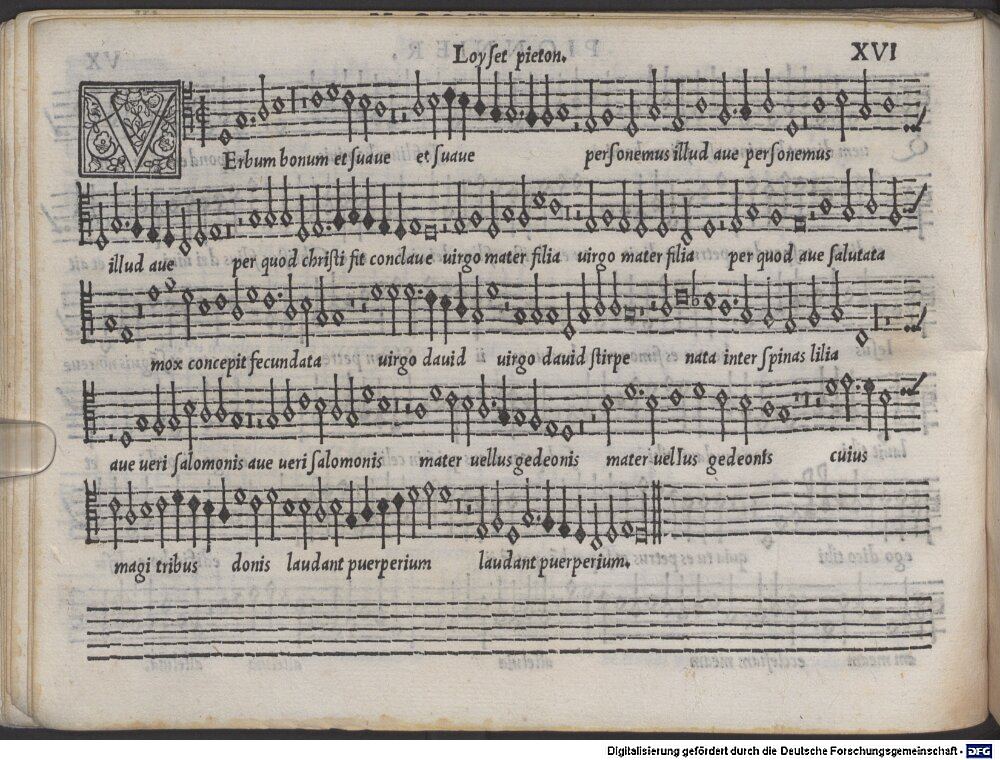 Loyſet pieton.
XVI
VErbum bonum et ſuaue et ſuaue perſonemus illud aue perſonemus
illud aue per quod chriſti fit conclaue uirgo mater filia uirgo mater filia per quod aue ſalutata
mox concepit fecundata uirgo dauid ii uirgo dauid ſtirpe nata inter ſpinas lilia
aue ueri ſalomonis aue ueri ſalomonis mater uellus gedeonis mater uellus gedeonis cuius
magi tribus donis laudant puerperium laudant puerperium.
Digitalisierung gefördert durch die Deutsche Forschungsgemeinschaft - DFG